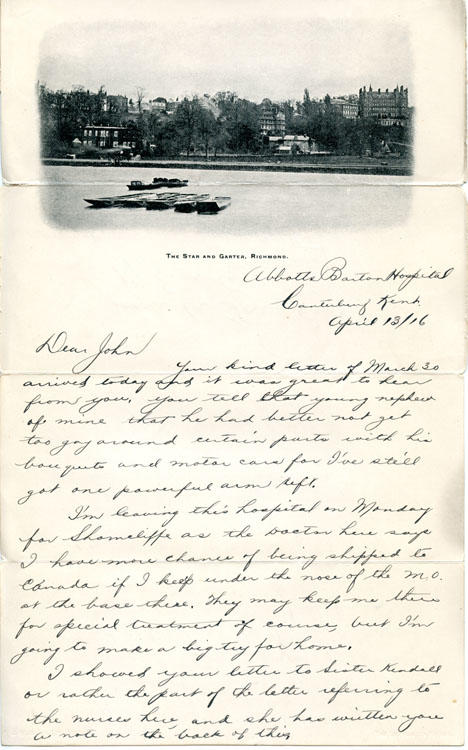 THE STAR AND GARTER, RICHMOND.
Abbotts Barton Hospital
Canterbury Kent
April 13/16
Dear John
Your kind letter of March 30
arrived today and it was great to hear
from you. You tell that young nephew
of mine that he had better not get
too gay around certain parts with his
bouquets and motor cars for I've still
got one powerful arm left.
I'm leaving this hospital on Monday
for Shorncliffe as the Doctor here says
I have more chance of being shipped to
Canada if I keep under the nose of the M.O.
at the base there. They may keep me there
for special treatment of course, but I'm
going to make a big try for home.
I showed your letter to Sister Kendall
or rather the part of the letter referring to
the nurses here and she has written you
a note on the back of this